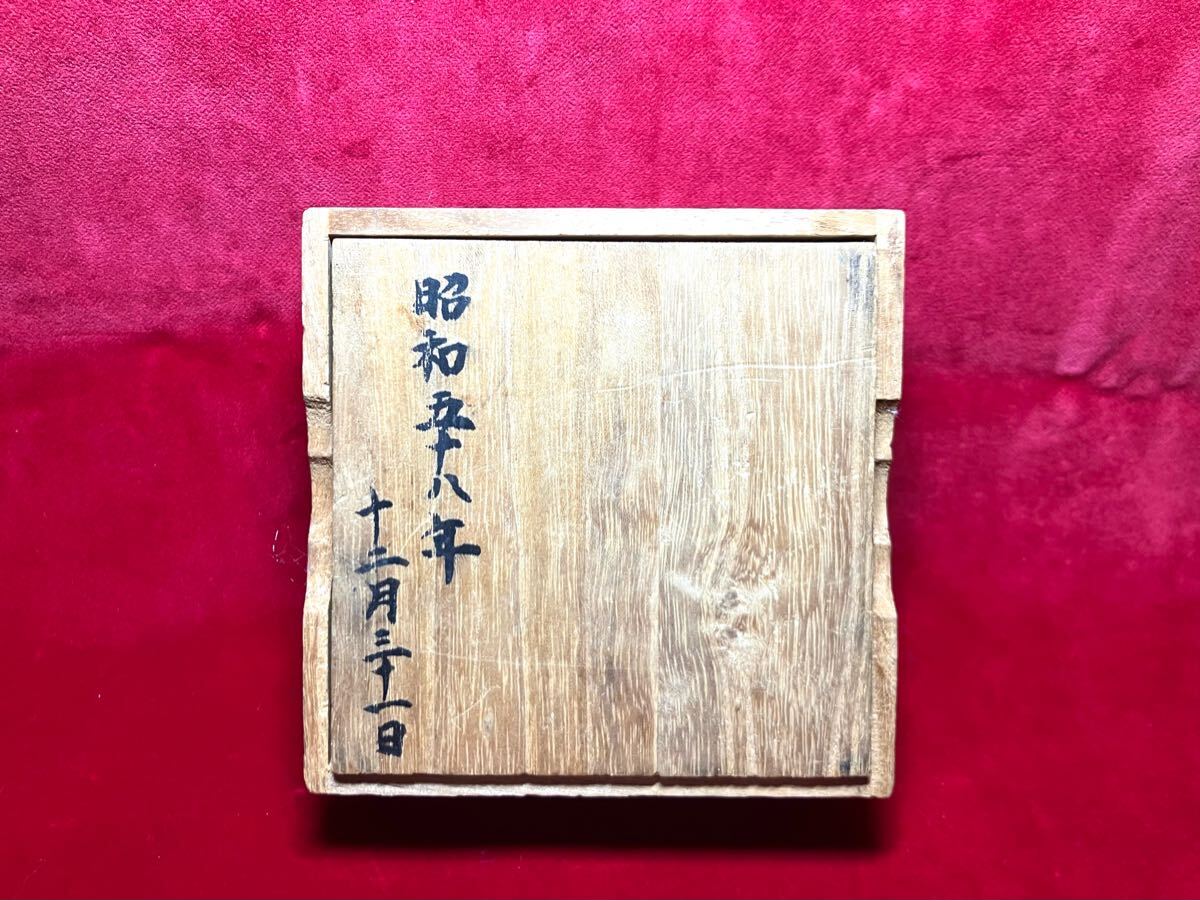 昭和五十八年
十二月三十一日